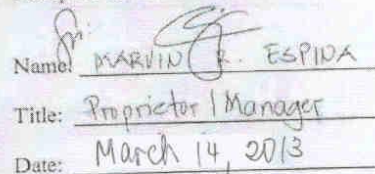 Name: MARVIN R. ESPINA
Title: Proprietor / Manager
Date: March 14, 2013